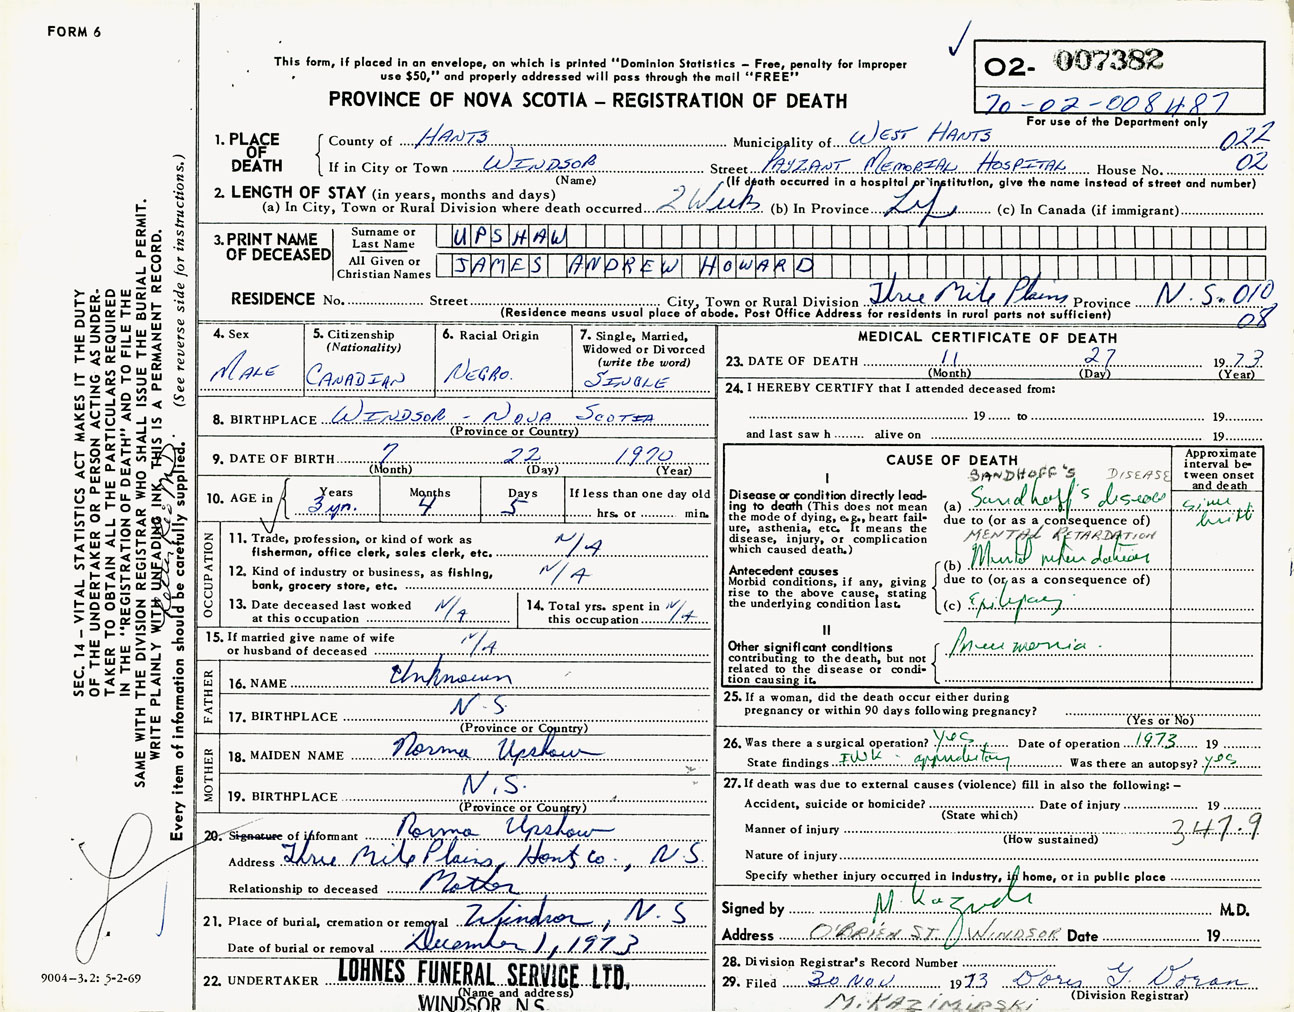 FORM 6
This form, if placed in an envelope, on which is printed "Dominion Statistics — Free, penalty for improper
use $50," and properly addressed will pass through the mail "FREE"
PROVINCE OF NOVA SCOTIA — REGISTRATION OF DEATH
02- 007382
70-02-008487
For use of the Department only
1. PLACE OF DEATH
County of HANTS Municipality of WEST HANTS 022
If in City or Town WINDSOR Street PAYZANT MEMORIAL HOSPITAL House No. 02
(Name) (If death occurred in a hospital or institution, give the name instead of street and number)
2. LENGTH OF STAY (in years, months and days)
(a) In City, Town or Rural Division where death occurred 2 Weeks (b) In Province Life (c) In Canada (if immigrant)
3. PRINT NAME OF DECEASED
Surname or Last Name UPSHAW
All Given or Christian Names JAMES ANDREW HOWARD
RESIDENCE No. Street City, Town or Rural Division Three Mile Plains Province N.S. 010
(Residence means usual place of abode. Post Office Address for residents in rural parts not sufficient) 08
4. Sex
MALE
5. Citizenship
(Nationality)
CANADIAN
6. Racial Origin
NEGRO.
7. Single, Married,
Widowed or Divorced
(write the word)
SINGLE
8. BIRTHPLACE WINDSOR - NOVA SCOTIA
(Province or Country)
9. DATE OF BIRTH 7 22 1970
(Month) (Day) (Year)
10. AGE in
Years Months Days If less than one day old
3 yrs. 4 5 hrs. or min.
OCCUPATION
11. Trade, profession, or kind of work as
fisherman, office clerk, sales clerk, etc. N/A
12. Kind of industry or business, as fishing,
bank, grocery store, etc. N/A
13. Date deceased last worked
at this occupation N/A
14. Total yrs. spent in
this occupation N/A
15. If married give name of wife
or husband of deceased N/A
FATHER
16. NAME Unknown
17. BIRTHPLACE N.S.
(Province or Country)
MOTHER
18. MAIDEN NAME Norma Upshaw
19. BIRTHPLACE N.S.
(Province or Country)
20. Signature of informant Norma Upshaw
Address Three Mile Plains, Hants Co., N.S.
Relationship to deceased Mother
21. Place of burial, cremation or removal Windsor, N.S
Date of burial or removal December 1, 1973
22. UNDERTAKER LOHNES FUNERAL SERVICE LTD.
(Name and address)
WINDSOR, N.S.
MEDICAL CERTIFICATE OF DEATH
23. DATE OF DEATH 11 27 1973
(Month) (Day) (Year)
24. I HEREBY CERTIFY that I attended deceased from:
19 to 19
and last saw h alive on 19
CAUSE OF DEATH
Approximate
interval be-
tween onset
and death
I
SANDHOFF'S DISEASE
Disease or condition directly lead-
ing to death (This does not mean
the mode of dying, e.g., heart fail-
ure, asthenia, etc. It means the
disease, injury, or complication
which caused death.)
(a) Sandhoff's disease since birth
due to (or as a consequence of)
MENTAL RETARDATION
Antecedent causes
Morbid conditions, if any, giving
rise to the above cause, stating
the underlying condition last.
(b) Mental retardation
due to (or as a consequence of)
(c) Epilepsy
II
Other significant conditions
contributing to the death, but not
related to the disease or condi-
tion causing it.
Pneumonia.
25. If a woman, did the death occur either during
pregnancy or within 90 days following pregnancy?
(Yes or No)
26. Was there a surgical operation? yes Date of operation 1973 19
State findings IWK - Was there an autopsy? yes
27. If death was due to external causes (violence) fill in also the following: —
Accident, suicide or homicide? Date of injury 19
(State which)
Manner of injury 347.9
(How sustained)
Nature of injury
Specify whether injury occurred in industry, in home, or in public place
Signed by M. M.D.
Address O'BRIEN ST. WINDSOR Date 19
28. Division Registrar's Record Number
29. Filed 30 NOV 1973 Doris G. Doran
(Division Registrar)
M. KAZIMIRSKI
SEC. 14 — VITAL STATISTICS ACT MAKES IT THE DUTY
OF THE UNDERTAKER OR PERSON ACTING AS UNDER-
TAKER TO OBTAIN ALL THE PARTICULARS REQUIRED
IN THE "REGISTRATION OF DEATH" AND TO FILE THE
SAME WITH THE DIVISION REGISTRAR WHO SHALL ISSUE THE BURIAL PERMIT.
WRITE PLAINLY WITH UNFADING INK THIS IS A PERMANENT RECORD.
Every item of information should be carefully supplied. (See reverse side for instructions.)
9004-3.2: 5-2-69